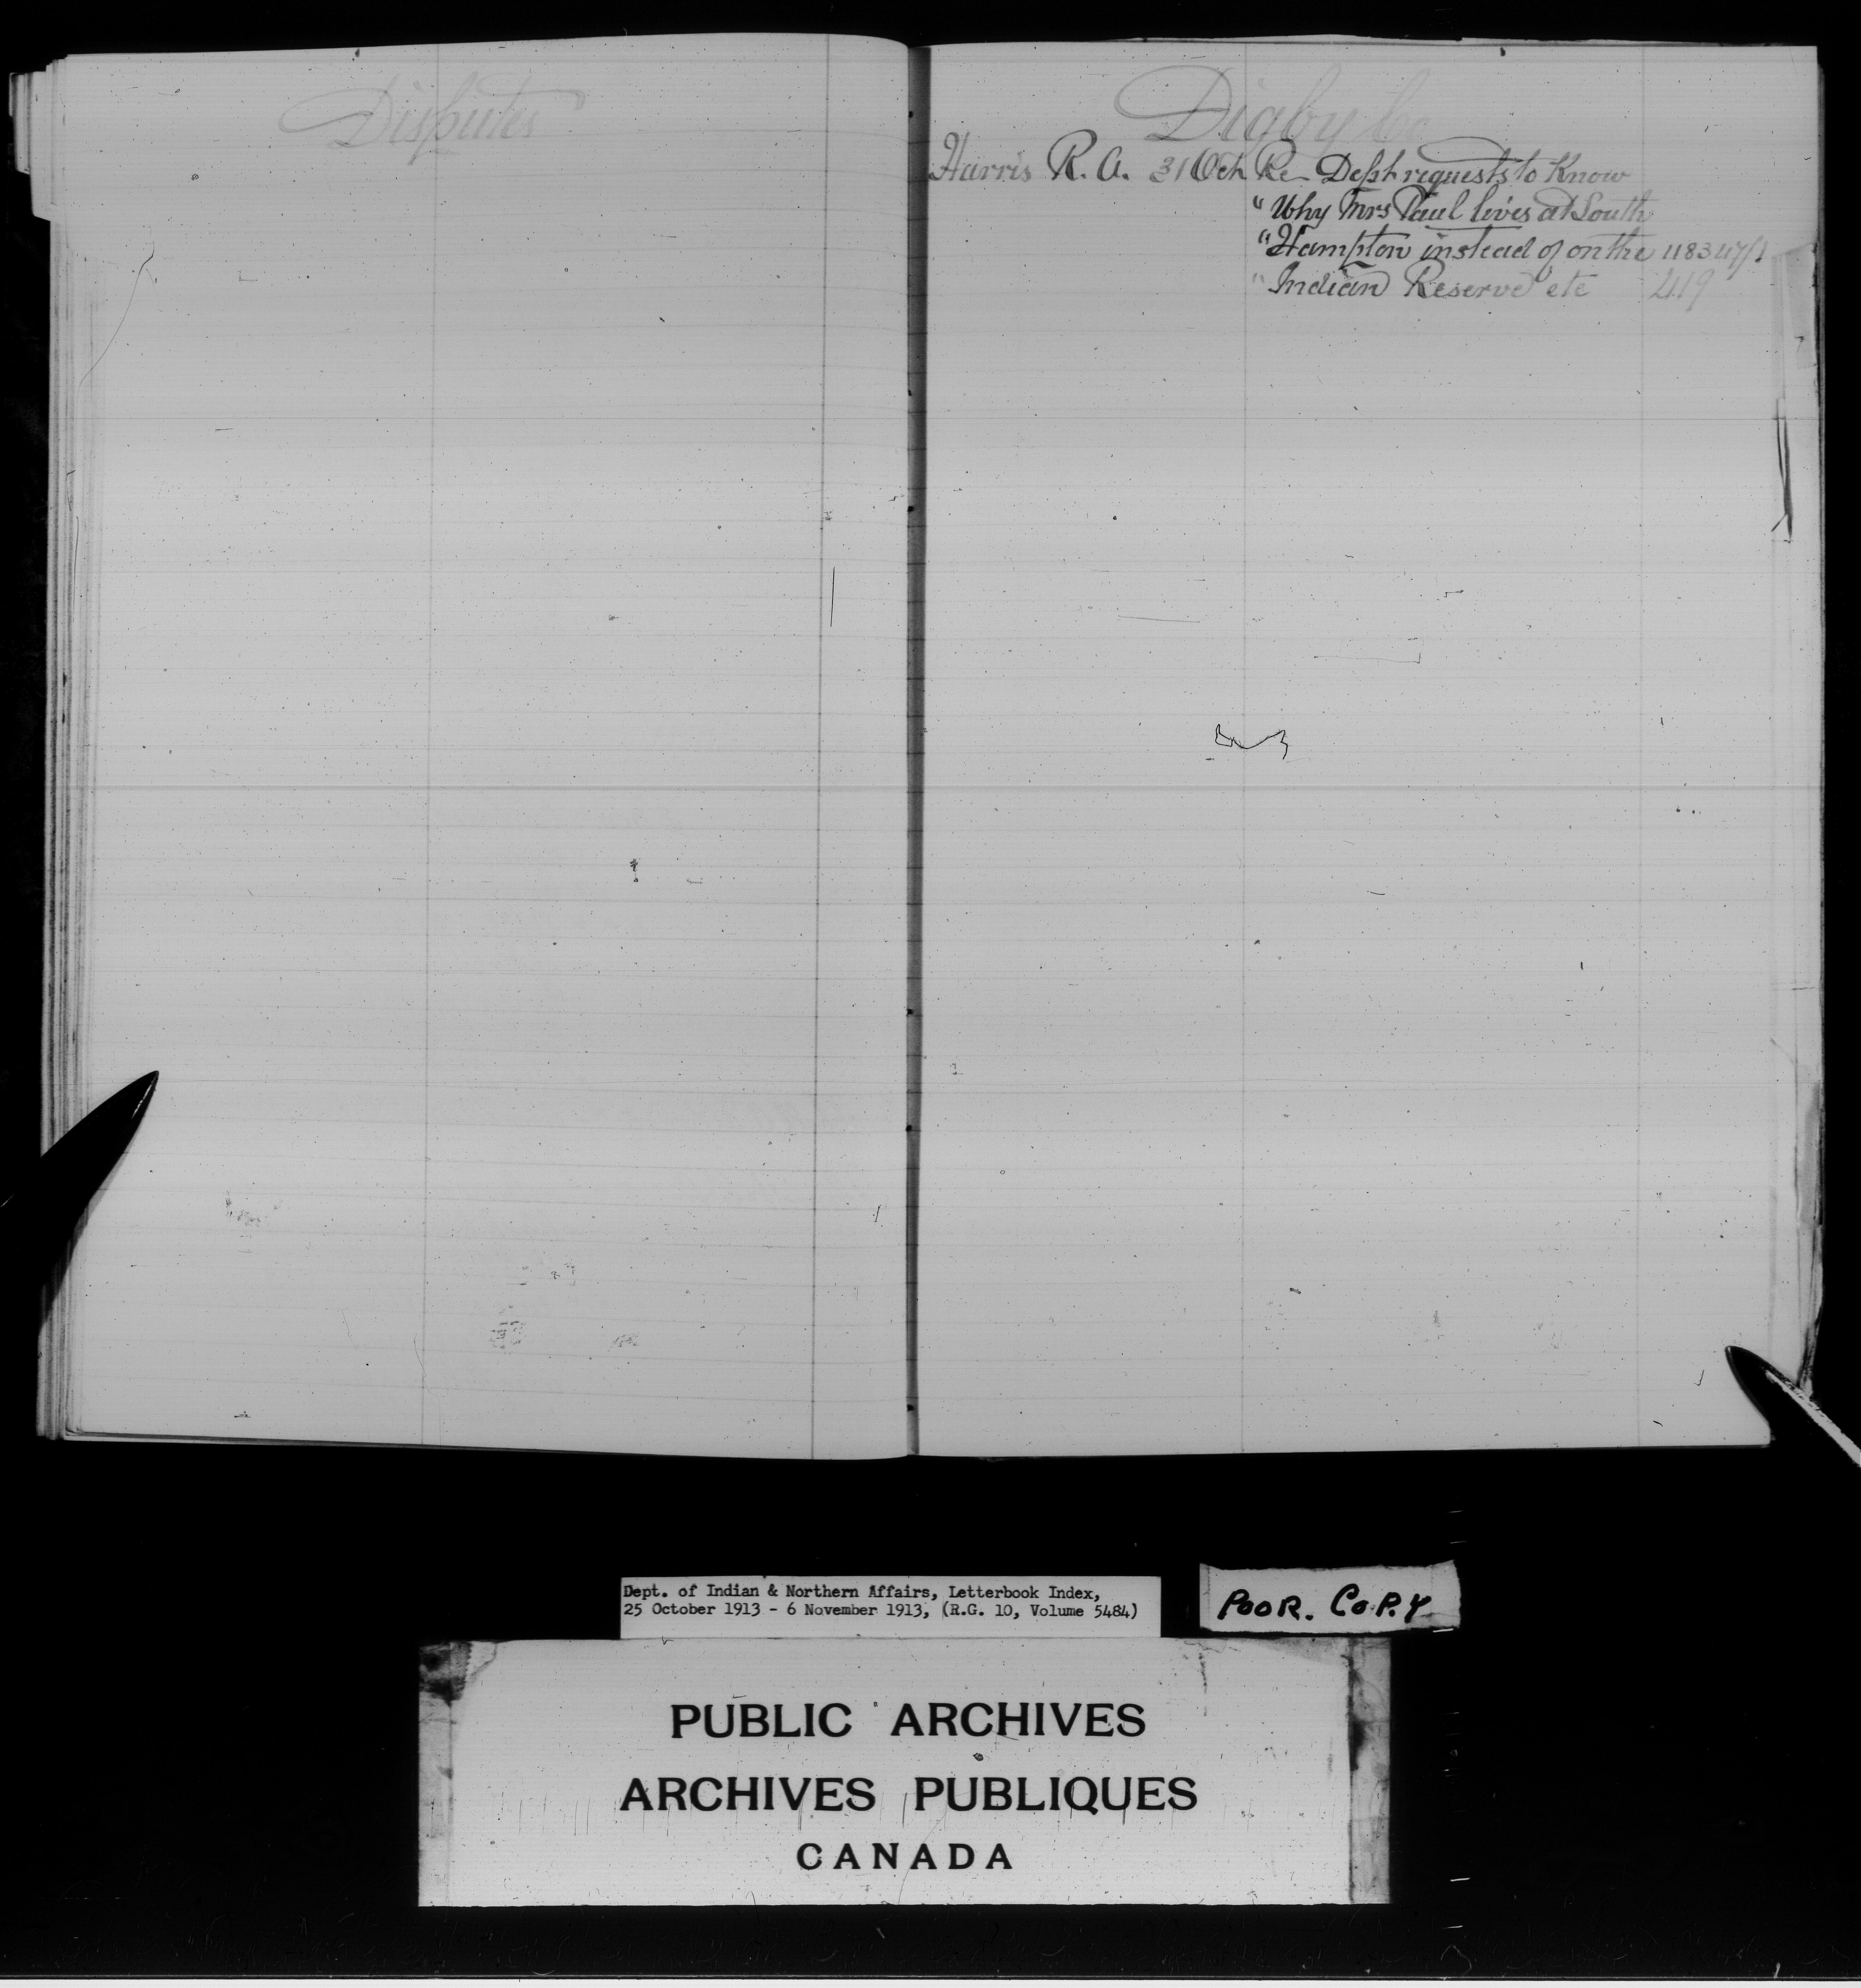 Disputes
Digby Co
Harris R. A. 31 Oct Re Dept requests to Know
" Why Mrs Paul lives at South
" Hampton instead of on the 118347/1
" Indian Reserve etc 419
Dept. of Indian & Northern Affairs, Letterbook Index,
25 October 1913 - 6 November 1913, (R.G. 10, Volume 5484)
POOR. COPY
PUBLIC ARCHIVES
ARCHIVES PUBLIQUES
CANADA